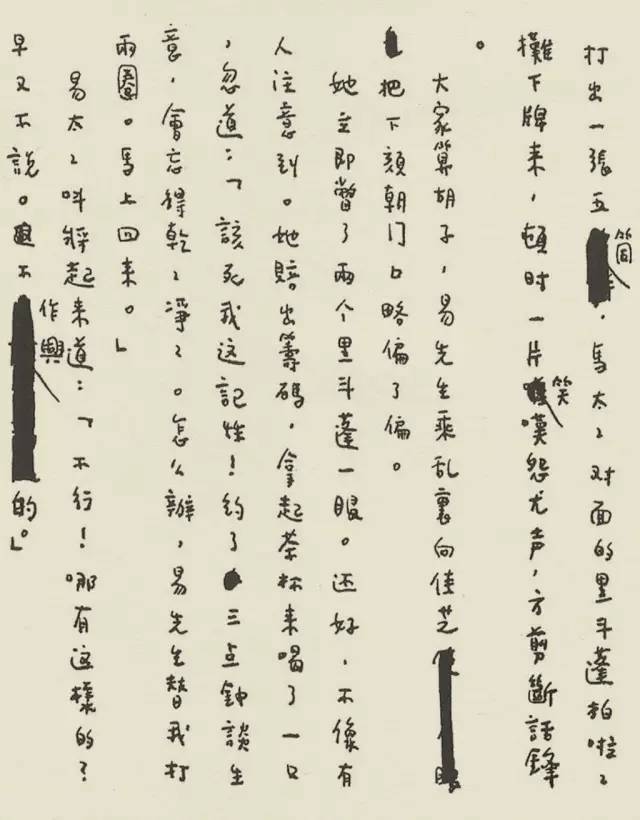 打出一張五筒,馬太〻对面的黑斗蓬拍啦〻
攤下牌来,頓时一片笑嘆怨尤声,方剪斷話鋒
。
大家算胡子,易先生乘乱裏向佳芝
把下頦朝门口略偏了偏。
她立即瞥了兩个黑斗蓬一眼。还好,不像有
人注意到。她賠出籌碼,拿起茶杯来喝了一口
,忽道:「該死我这記性!約了三点鐘談生
意,會忘得乾〻淨〻。怎么辦,易先生替我打
兩圈。馬上回来。」
易太〻叫將起来道:「不行!哪有这樣的?
早又不說。不作興的。」